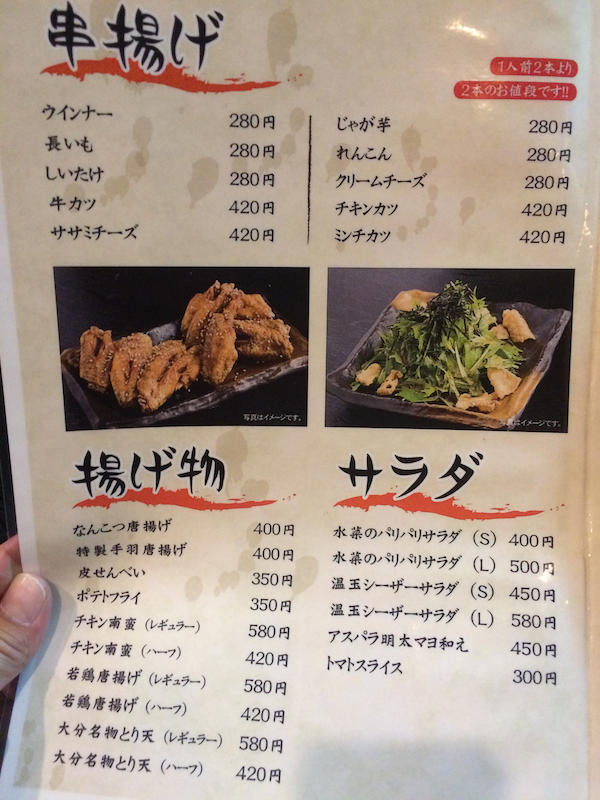 串揚げ
1人前2本より
2本のお値段です!!
ウインナー 280円
長いも 280円
しいたけ 280円
牛カツ 420円
ササミチーズ 420円
じゃが芋 280円
れんこん 280円
クリームチーズ 280円
チキンカツ 420円
ミンチカツ 420円
写真はイメージです。
写真はイメージです。
揚げ物
なんこつ唐揚げ 400円
特製手羽唐揚げ 400円
皮せんべい 350円
ポテトフライ 350円
チキン南蛮(レギュラー) 580円
チキン南蛮(ハーフ) 420円
若鶏唐揚げ(レギュラー) 580円
若鶏唐揚げ(ハーフ) 420円
大分名物とり天(レギュラー) 580円
大分名物とり天(ハーフ) 420円
サラダ
水菜のパリパリサラダ(S) 400円
水菜のパリパリサラダ(L) 500円
温玉シーザーサラダ(S) 450円
温玉シーザーサラダ(L) 580円
アスパラ明太マヨ和え 450円
トマトスライス 300円